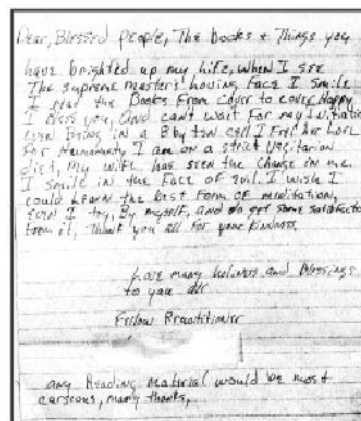 Dear, Blessed People, The books + Things you
have brighted up my life, when I see
The supreme master's loving Face I smile
I read the Books From cover to cover Happy
I Bless you, and can't wait For my Initiatio
even Being in a 8 by ten cell I Feel her Love
For Heumanaty I am on a strict Vegitarian
diet, My wife has seen the change in me
I smile in the Face of evil. I wish I
could learn the best Form of meditation,
Even I try, By myself, and do get some satisfacto
form it, Thank you all For your kindness,
love many and Blessings
to you all
Fellow Practitioner
any Reading Material would be most
many thanks,